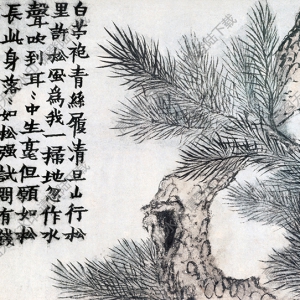 白苧袍青絲履清旦山行松
里許松風為我一掃地忽作水
聲吹到耳〻中生毫但願如松
長此身落〻如松强試問有錢